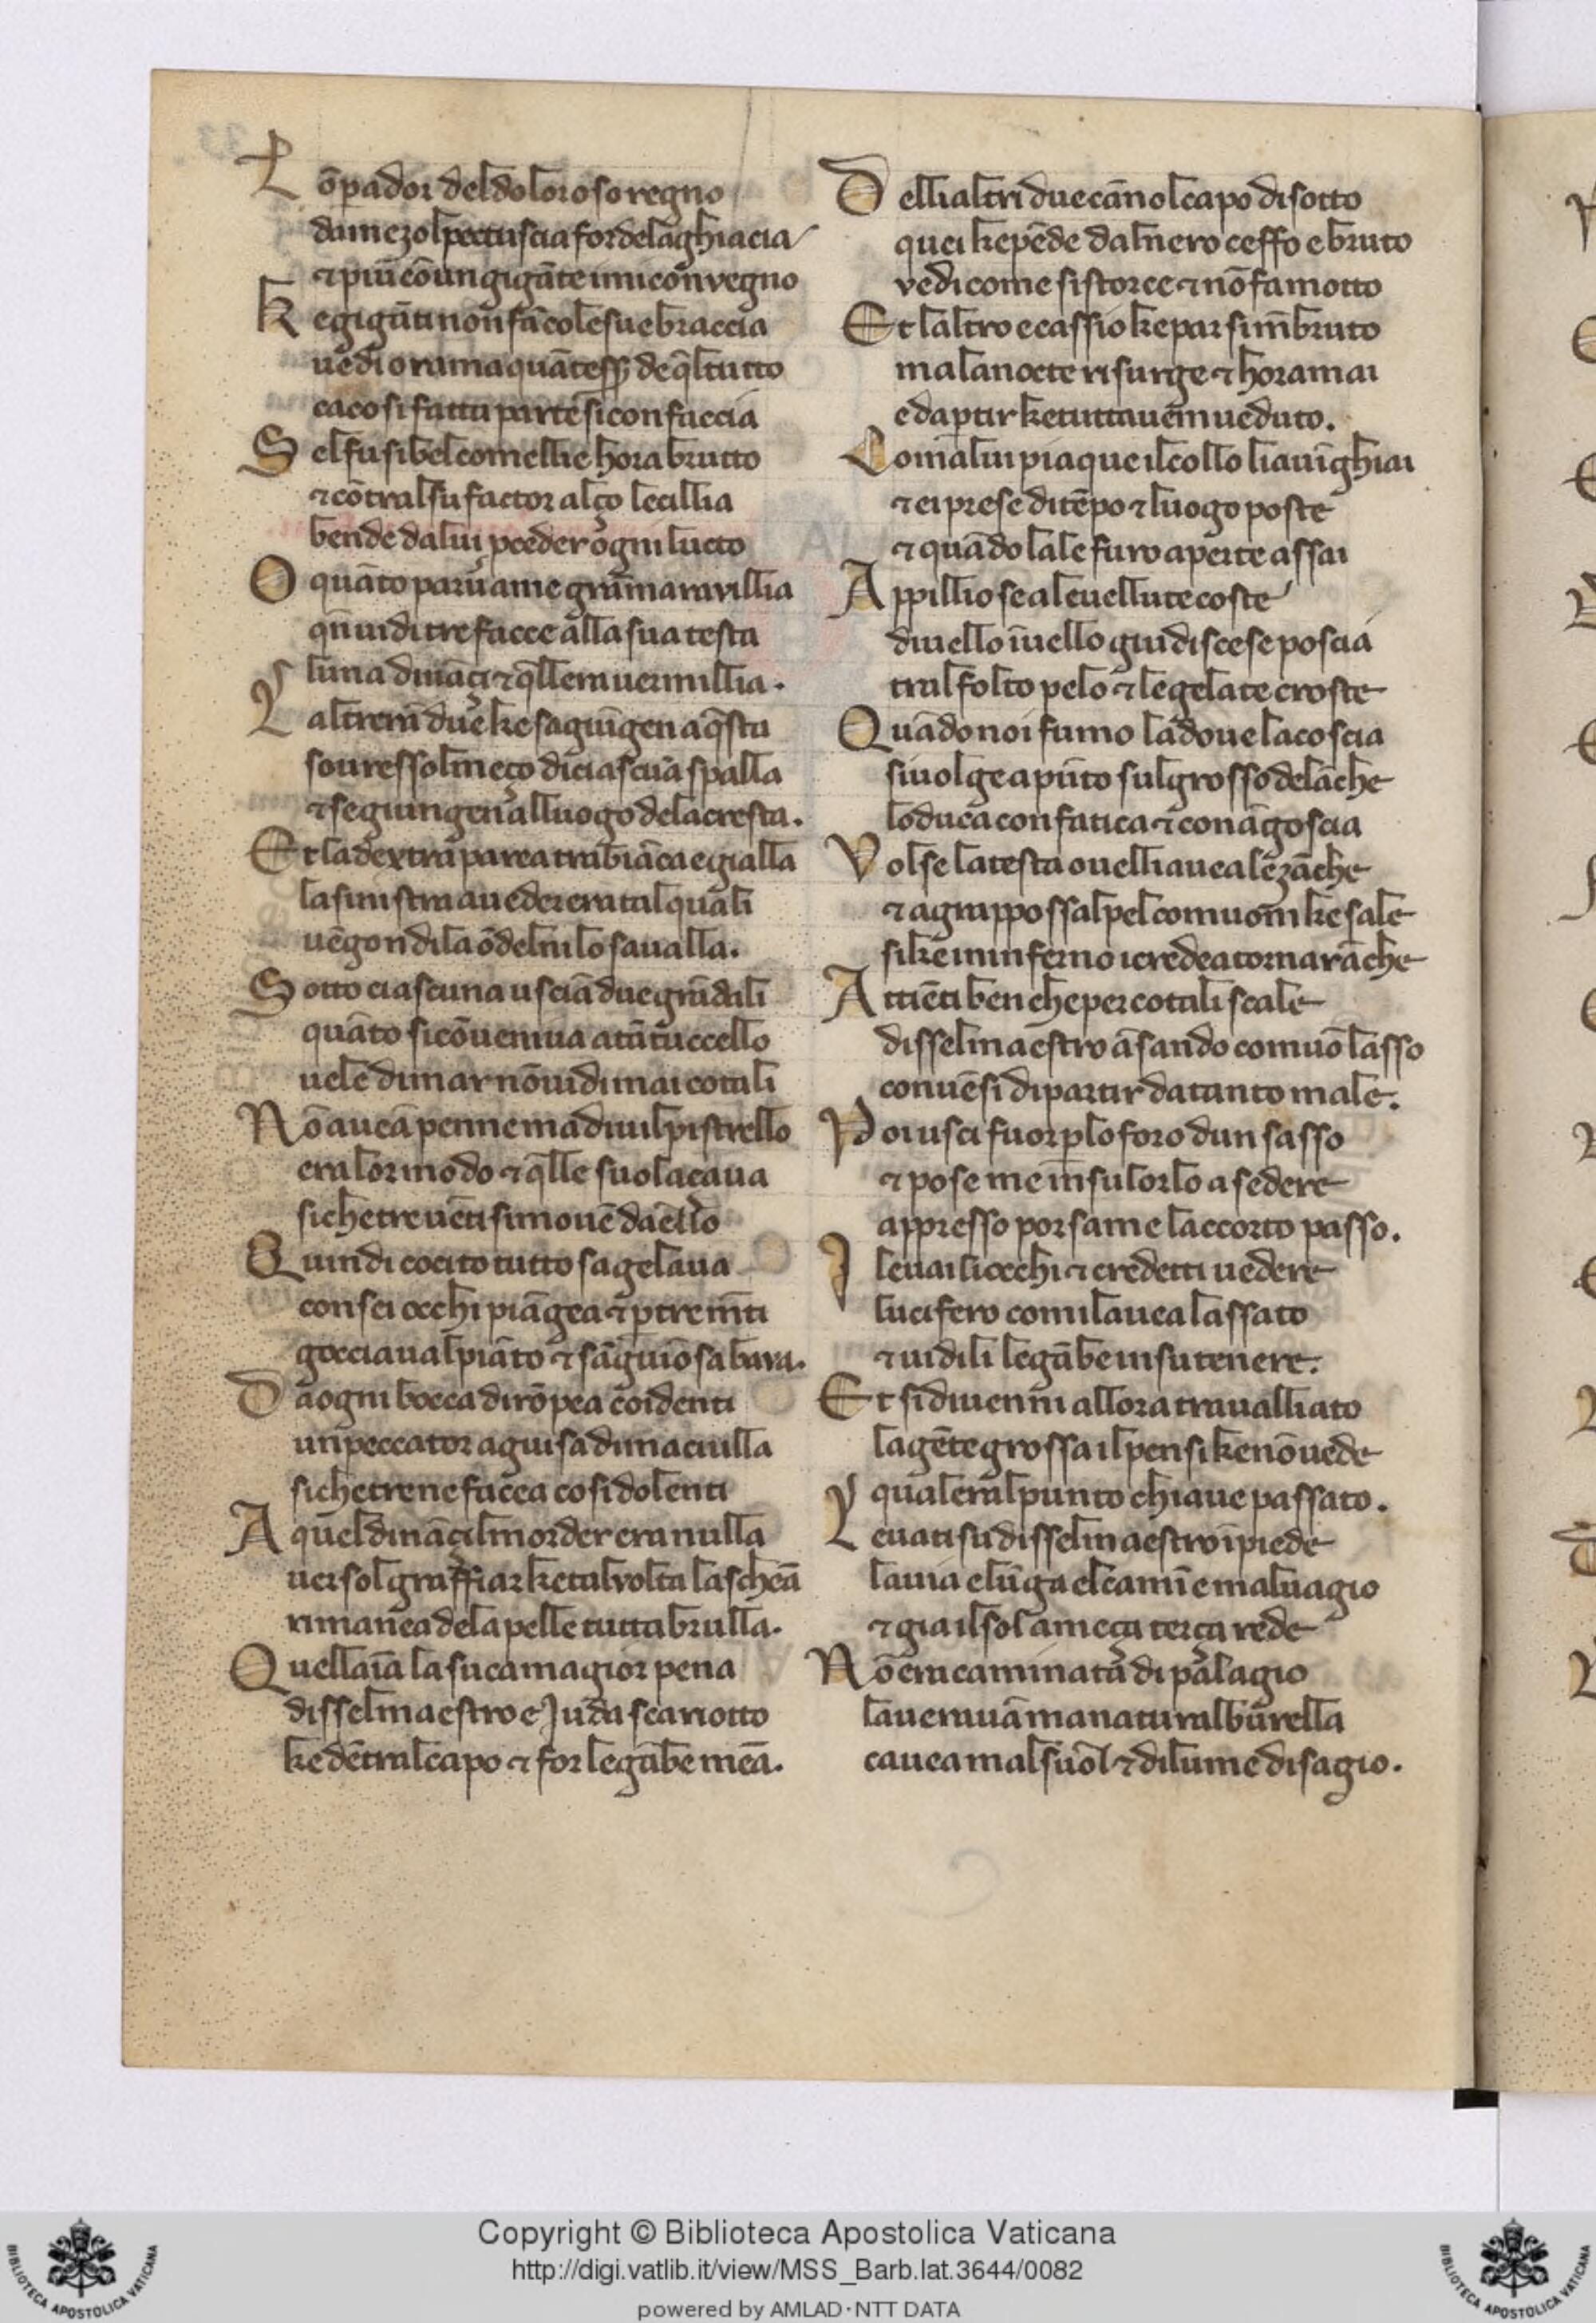 L ōpador del doloroso regno
damezolpectuscia for dela ghiacia
⁊ piu cōun gigāte imi convegno
K e gigāti non fā cole sue braccia
uedi orama quātess̄ de q̄l tutto
cacosi fatta parte si confaccia
S el fu si bel comellie hora brutto
⁊ cōtral su factor alço le cillia
bende da lui p̄ceder ogni lucto
O quāto paru̇ame grām maravillia
qn̄ uidi tre facce alla sua testa
luna dināçi ⁊ q̄llera uermillia.
L altrerā due ke sagiūgen a q̄sta
souressolmeço di ciascūa spalla
⁊ segiungen alluogo dela cresta.
Et la dextra parea tra biāca e gialla
la sinistra auederera tal quali
uēgon dila ōdelnilo saualla.
S otto ciascuna uscīa due grādali
quāto si cōueniua atātuccello
uele dimar nō uidi mai cotali
N ō aueā penne ma diuilpistrello
era lor modo ⁊ q̄lle suolacaua
si che tre uēti si mouē daēllo
Q uindi cocito tutto sagelaua
con sei occhi piāgea ⁊ p tre mēti
gocciaual piāto ⁊ sāguiōsa baua.
D a ogni bocca dirōpea coidenti
un peccator a guisa dimaciulla
si che tre ne facea cosi dolenti
A quel dināçi lmorder era nulla
uersol graffiar ke talvolta la scheā
rimanea dela pelle tutta brulla.
Quellaīa lasu camagior pena
disselmaestro e Juda scariotto
ke dētral capo ⁊ for le gābe mēa.
D elli altri due cāno lcapo di sotto
quei ke pēde dal nero ceffo e bruto
vedi come si storce ⁊ nō fa motto
Et laltro e cassio ke par sīmbruto
ma la nocte risurge ⁊ horamai
e da p̄tir ke tutta uem ueduto.
C omalui piaque il collo li auīghiai
⁊ ei prese di tēpo ⁊ luogo poste
⁊ quādo lale furo aperte assai
A ppillio se ale uellute coste
di uello ī uello giu discese poscia
tral folto pelo ⁊ le gelate croste
Q uādo noi fumo la doue la coscia
si uolge apūto sul grosso delāche
lo duca con fatica ⁊ con āgoscia
V olse la testa ou elli auea le zāche
⁊ agrappossal pel comuom ke sale
sike in inferno i credea tornar āche
A ttiēti ben che per cotali scale
disselmaestro āsando comuō lasso
conuēsi dipartir da tanto male.
P oi usci fuor p lo foro dun sasso
⁊ pose me in sulorlo a sedere
appresso porsame laccorto passo.
I leuai li occhi ⁊ credetti uedere
lucifero comilauea lassato
⁊ uidili le gābe in su tenere.
Et sidiuenni allora trauallìato
la gēte grossa il pensi ke nō uede
qual eral punto chi aue passato.
L euati su disselmaestro ī piede
la uia e lūga el camīe maluagio
⁊ gia il sol a meça terça rede
N ō era caminata di palagio
lauerauā ma natural burella
cauea mal suol ⁊ di lume disagio.
Copyright © Biblioteca Apostolica Vaticana
http://digi.vatlib.it/view/MSS_Barb.lat.3644/0082
powered by AMLAD·NTT DATA
BIBLIOTECA APOSTOLICA VATICANA
BIBLIOTECA APOSTOLICA VATICANA